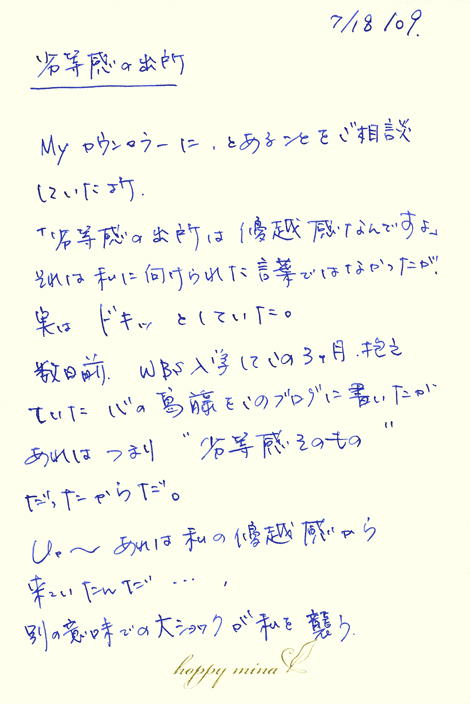 7/18/09.
劣等感の出所
My カウンセラーに、とあることをご相談
していた時、
「劣等感の出所は優越感なんですよ」
それは私に向けられた言葉ではなかったが、
実はドキッとしていた。
数日前、WBS入学しての3ヶ月、抱え
ていた心の葛藤をこのブログに書いたが
あれはつまり "劣等感そのもの"
だったからだ。
ひゃ〜あれは私の優越感から
来ていたんだ…、
別の意味での大ショックが私を襲う。
happy mina